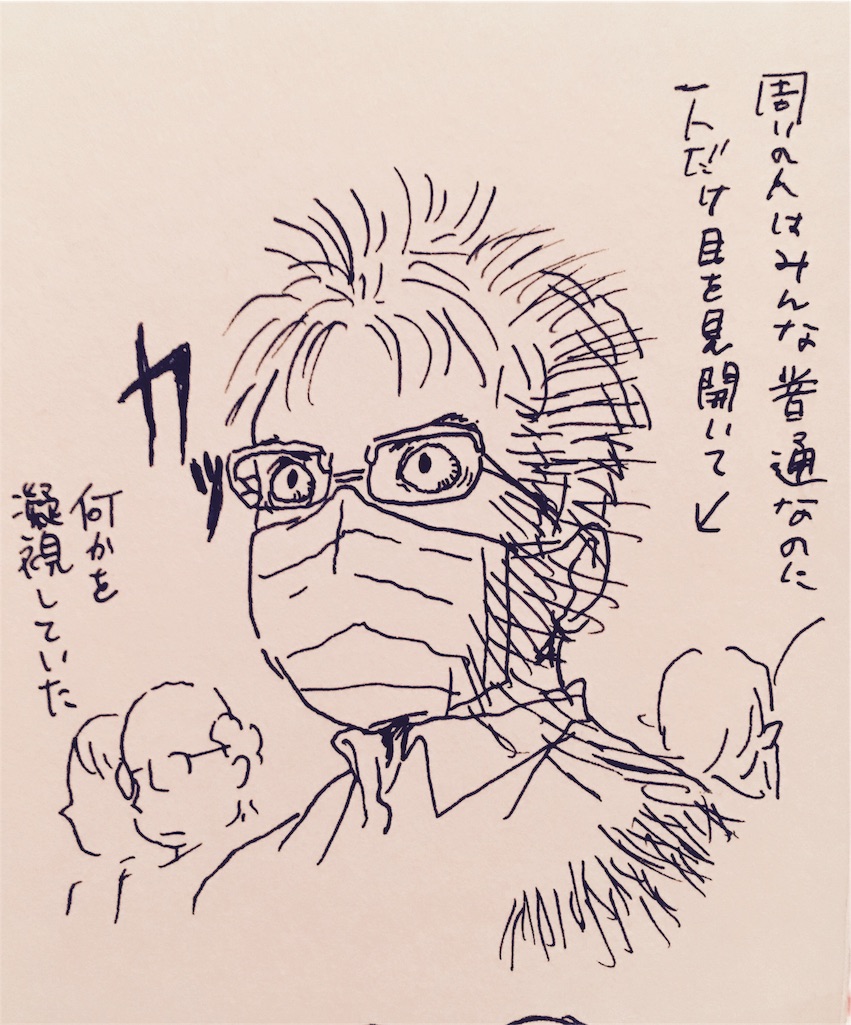 周りの人はみんな普通なのに
一人だけ目を見開いて↙
カッ
何かを
凝視していた